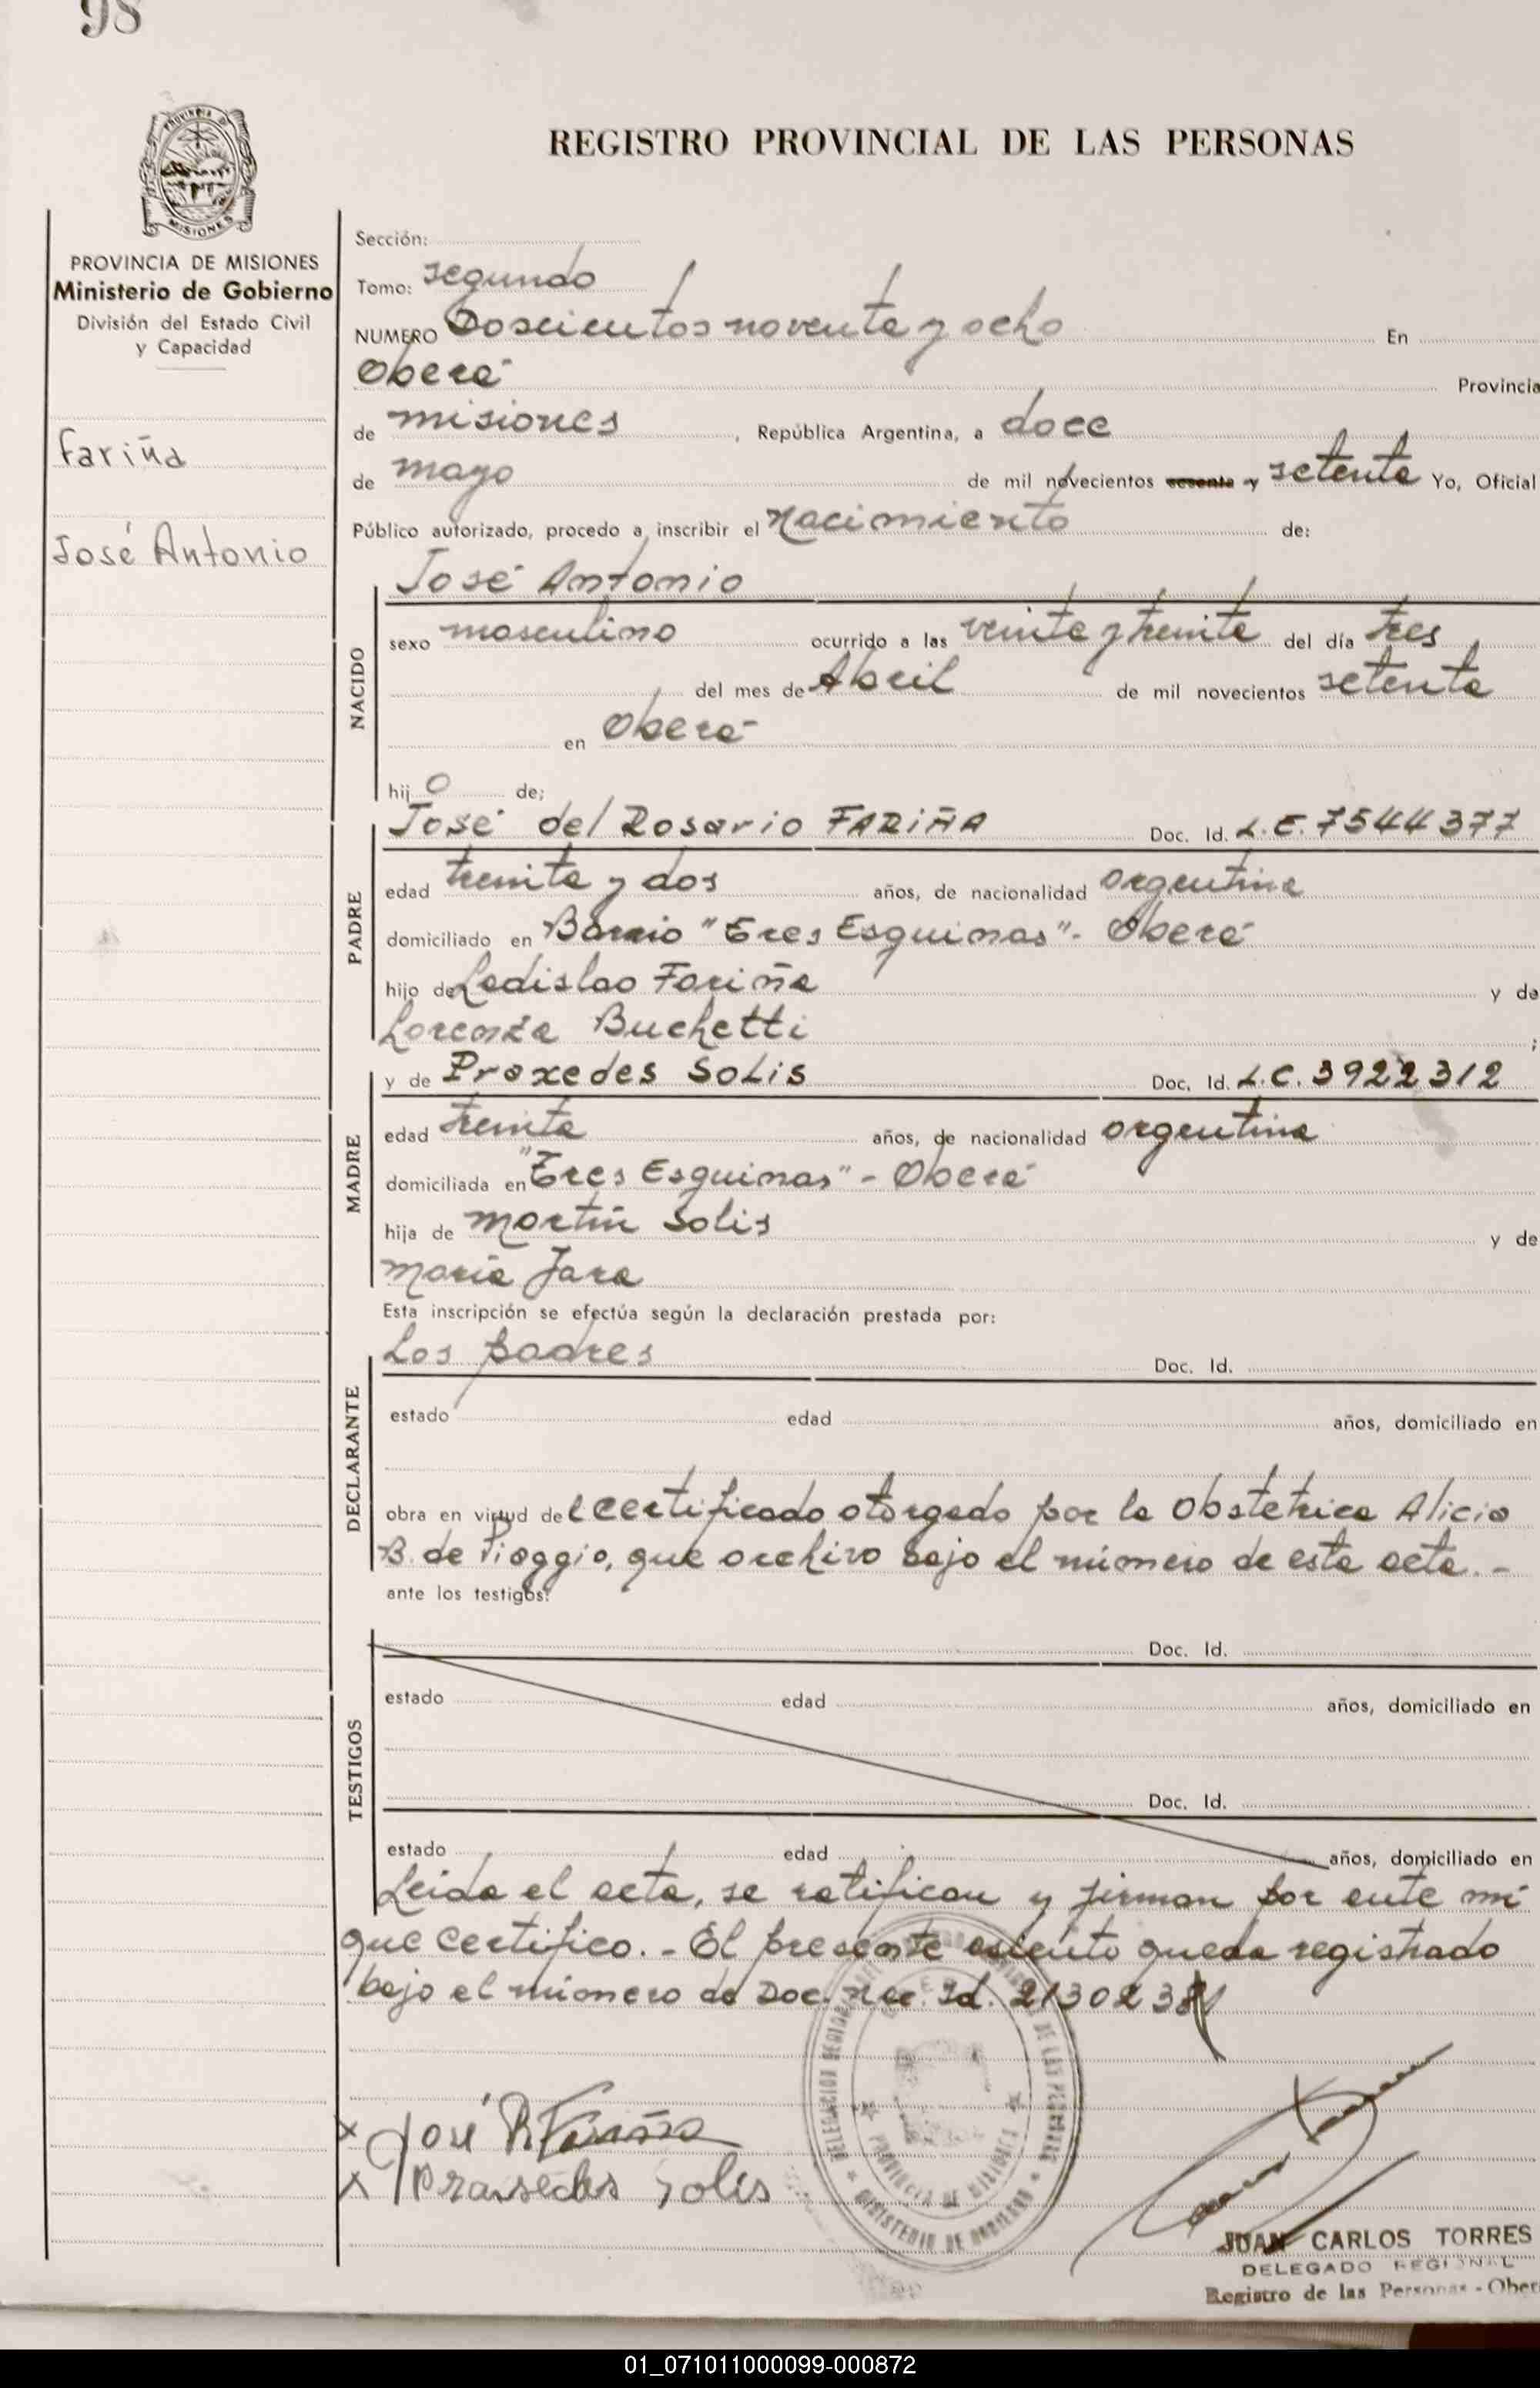 98
REGISTRO PROVINCIAL DE LAS PERSONAS
PROVINCIA DE MISIONES
Ministerio de Gobierno
División del Estado Civil
y Capacidad
Fariña
José Antonio
Sección:
Tomo: segundo
NUMERO Doscientos noventa y ocho En
Oberá Provincia
de misiones, República Argentina, a doce
de mayo de mil novecientos sesenta y setenta Yo, Oficial
Público autorizado, procedo a inscribir el nacimiento de:
NACIDO
José Antonio
sexo masculino ocurrido a las veinte y treinta del día tres
del mes de Abril de mil novecientos setenta
en Oberá
hijo de;
PADRE
José del Rosario FARIÑA Doc. Id. L.E. 7544377
edad treinta y dos años, de nacionalidad argentina
domiciliado en Barrio "Tres Esquinas"- Oberá
hijo de Ladislao Fariña y de
Lorenza Buchetti ;
MADRE
y de Praxedes SOLIS Doc. Id. L.C. 3922312
edad treinta años, de nacionalidad argentina
domiciliada en "Tres Esquinas" - Oberá
hija de Martín Solis y de
María Jara
Esta inscripción se efectúa según la declaración prestada por:
DECLARANTE
Los padres Doc. Id.
estado edad años, domiciliado en
obra en virtud del certificado otorgado por la Obstetrica Alicia
B. de Piaggio, que archivo bajo el número de esta acta.-
ante los testigos:
TESTIGOS
Doc. Id.
estado edad años, domiciliado en
Doc. Id.
estado edad años, domiciliado en
Leida el acta, se ratifican y firman por ante mí
que certifico.- El presente asiento queda registrado
bajo el número de Doc. Nac. Id.
x José R Fariña
x Praxsedes Solis
PROVINCIA DE MISIONES
MINISTERIO DE GOBIERNO
JUAN CARLOS TORRES
DELEGADO REGIONAL
Registro de las Personas - Ober
01_071011000099-000872